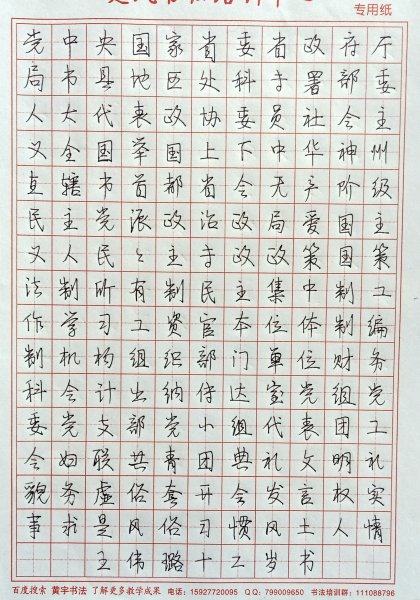 专用纸
党中央国家省委省政府厅
局市县地区处科专署部委
人大代表政协委员社会主
义全国举国上下中华神州
直辖市首都省会无产阶级
民主党派政治政局爱国主
义人民々主专政政策国策
法制所有制民主集中制工
作学习工资官本位体制编
制机构组织部门单位财务
科会计出纳传达室党组党
委党支部党小组代表团工
会妇联共青团典礼文明礼
貌务虚俗套开会发言权实
事求是风俗习惯风土人情
王伟璐十二岁书
百度搜索 黄宇书法 了解更多教学成果 电话：15927720095 QQ：799009650 书法培训群：111088796